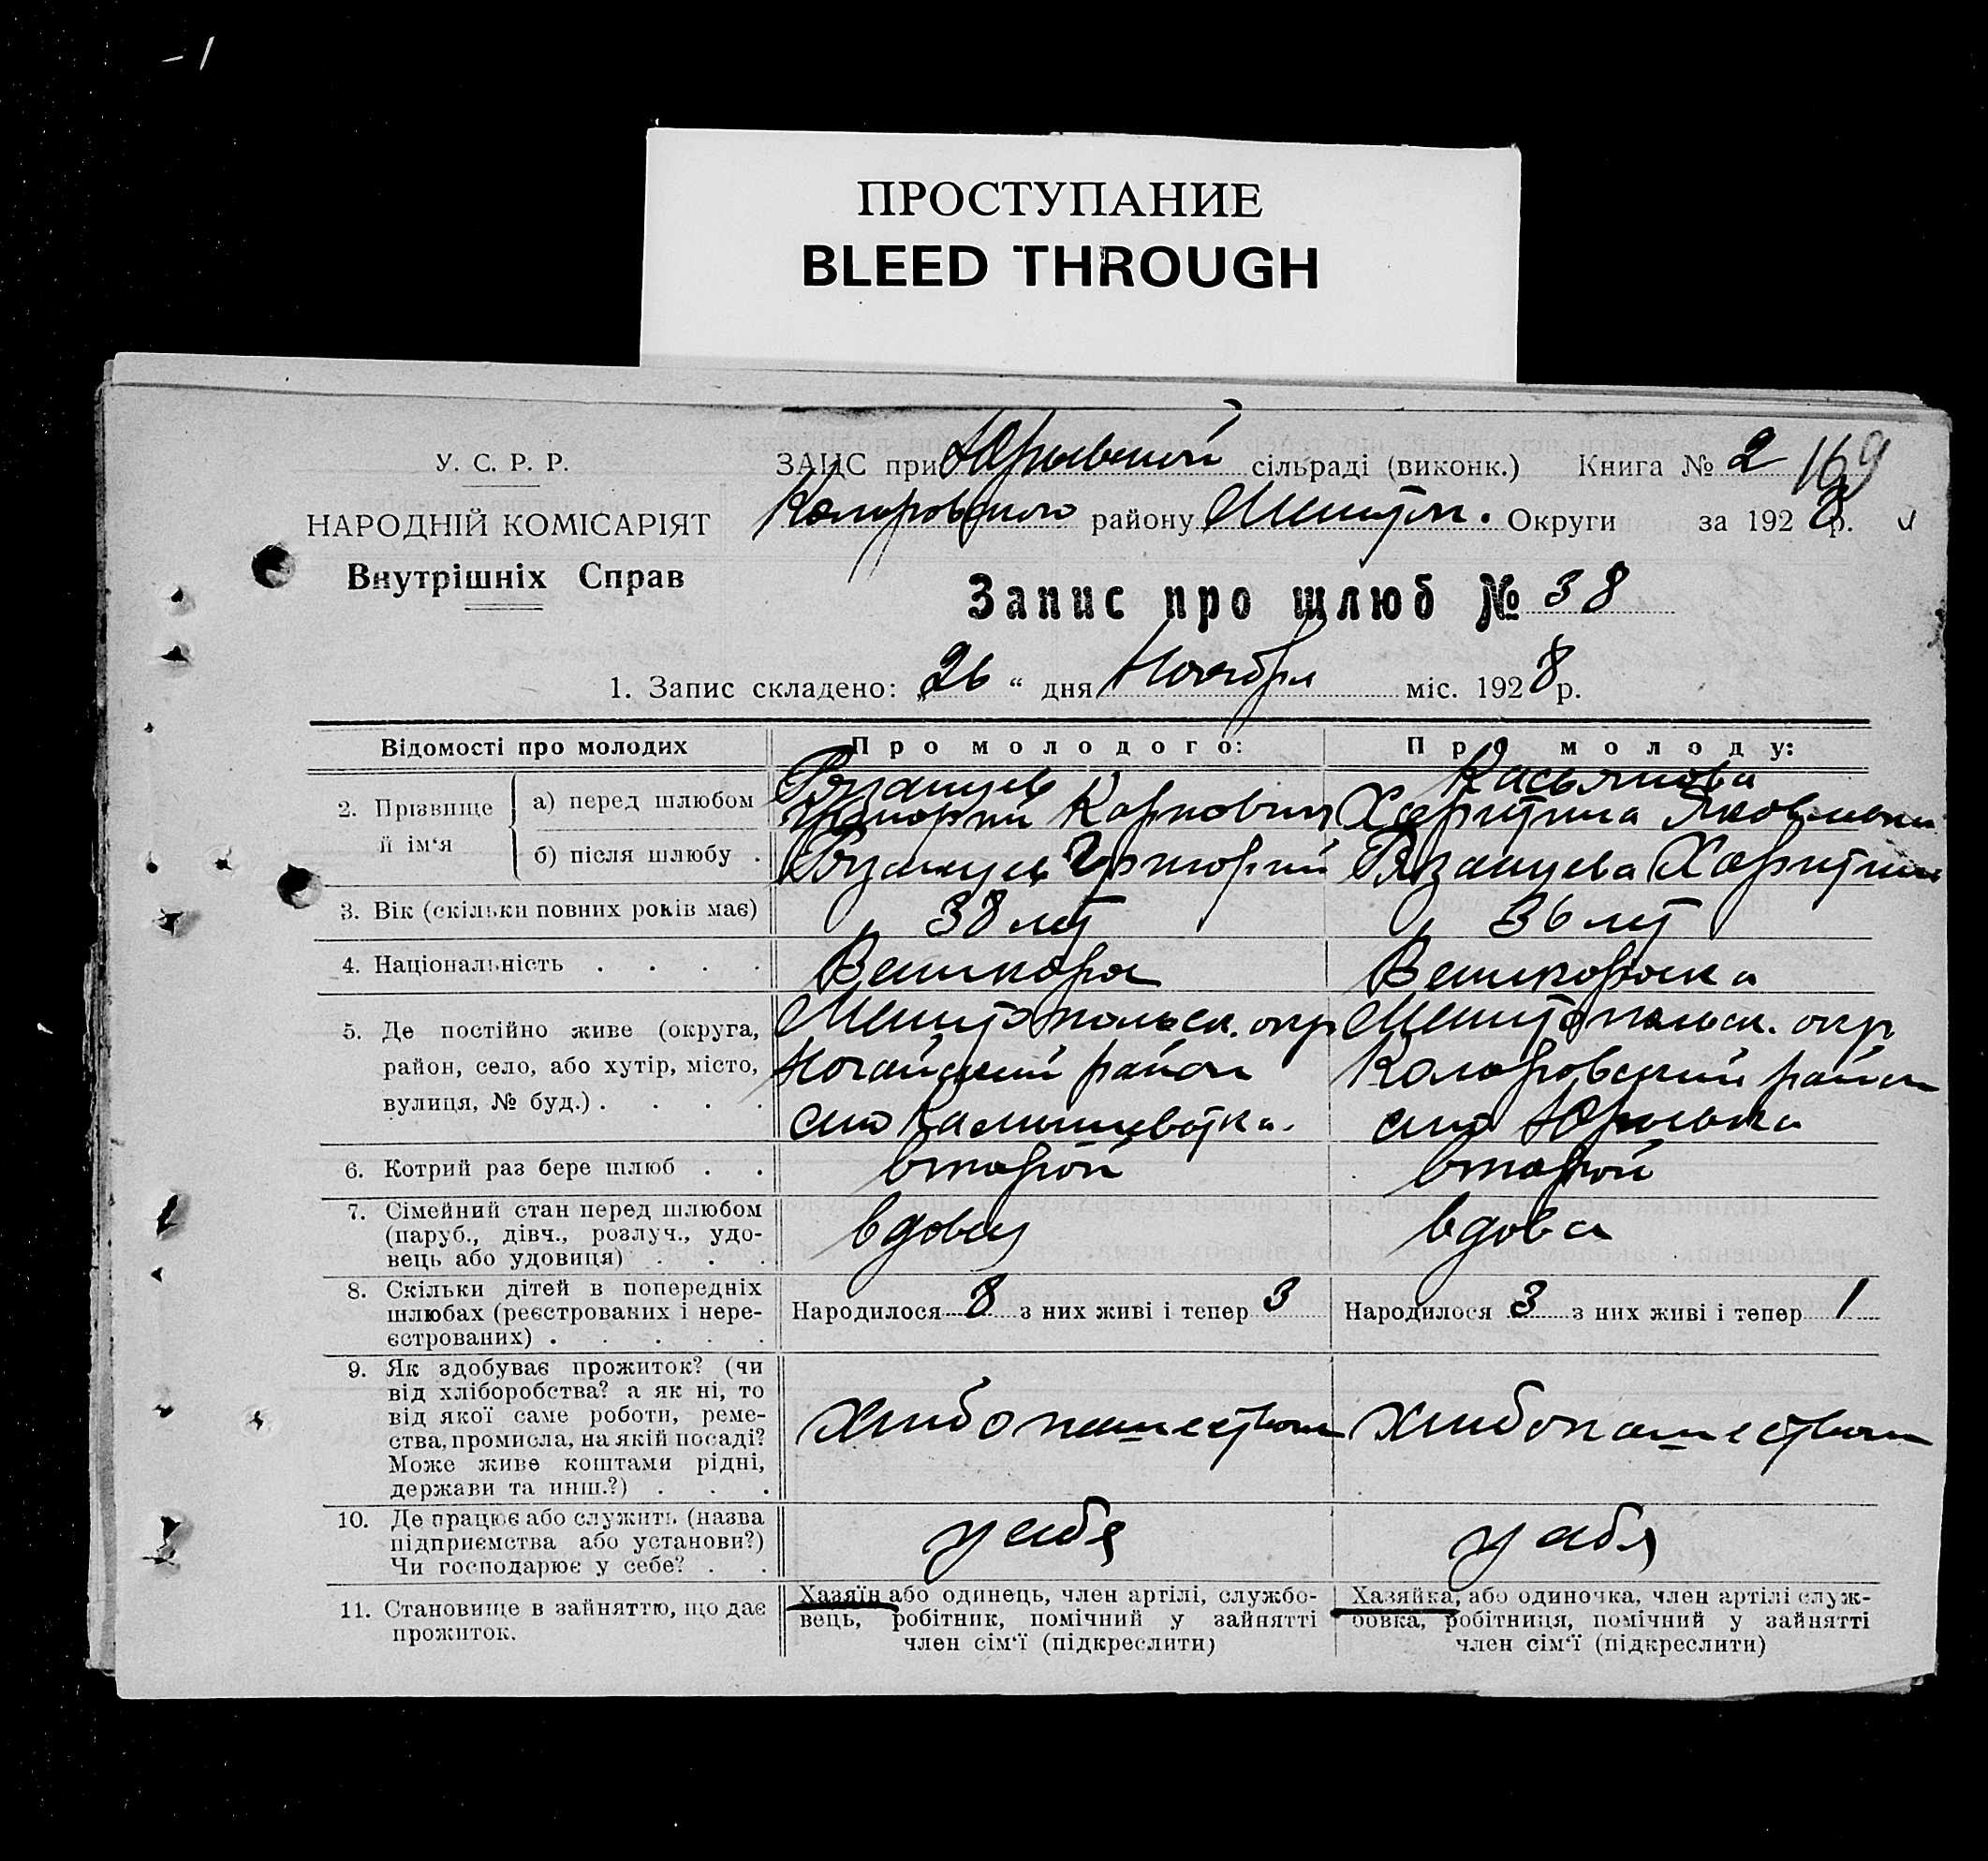 ПРОСТУПАНИЕ
BLEED THROUGH
У. С. Р. Р.
НАРОДНІЙ КОМІСАРІЯТ
Внутрішніх Справ
ЗАЦС при Юрьевской сільраді (виконк.) Книга № 2 169
Коларовского району Мелитоп. Округи за 1928 р.
Запис про шлюб № 38
1. Запис складено: „26“ дня Ноября міс. 1928 р.
Відомості про молодих
Про молодого:
Про молоду:
2. Прізвище й ім‘я
а) перед шлюбом
Рязанцев
Григорий Карпович
Касьянова
Харитина Яковлевна
б) після шлюбу .
Рязанцев Григорий
Рязанцева Харитина
3. Вік (скільки повних років має)
38 лет
36 лет
4. Національність . . . .
Великоросс
Великоросска
5. Де постійно живе (округа,
район, село, або хутір, місто,
вулиця, № буд.) . . . .
Мелитопольск. окр
Ногайский район
село Камышеватка.
Мелитопольск. окр
Коларовский район
село Юрьевка
6. Котрий раз бере шлюб . .
второй
второй
7. Сімейний стан перед шлюбом
(паруб., дівч., розлуч., удо-
вець або удовиця) . . .
вдовец
вдова
8. Скільки дітей в попередніх
шлюбах (реєстрованих і нере-
єстрованих) . . . . .
Народилося 8 з них живі і тепер 3
Народилося 3 з них живі і тепер 1
9. Як здобуває прожиток? (чи
від хліборобства? а як ні, то
від якої саме роботи, реме-
ства, промисла, на якій посаді?
Може живе коштами рідні,
держави та инш.?) . . .
хлебопашеством
хлебопашеством
10. Де працює або служить (назва
підприємства або установи?)
Чи господарює у себе? . .
у себя
у себя
11. Становище в зайняттю, що дає
прожиток.
Хазяїн або одинець, член артілі, службо-
вець, робітник, помічний у зайнятті
член сім‘ї (підкреслити)
Хазяйка, або одиночка, член артілі служ-
бовка, робітниця, помічний у зайнятті
член сім‘ї (підкреслити)